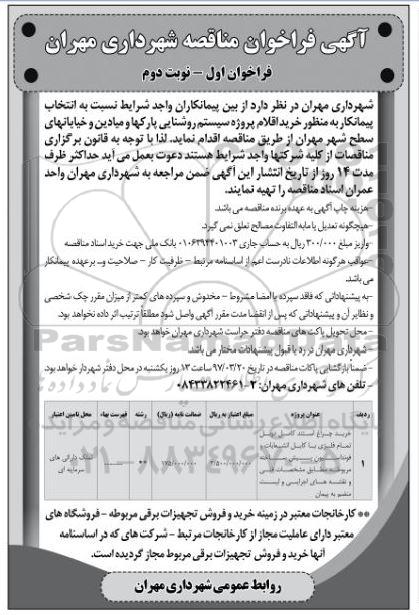 آگهی فراخوان مناقصه شهرداری مهران
فراخوان اول - نوبت دوم
شهرداری مهران در نظر دارد از بین پیمانکاران واجد شرایط نسبت به انتخاب
پیمانکار به منظور خرید اقلام پروژه سیستم روشنایی پارکها و میادین و خیابانهای
سطح شهر مهران از طریق مناقصه اقدام نماید. لذا با توجه به قانون برگزاری
مناقصات از کلیه شرکتها واجد شرایط هستند دعوت بعمل می آید حداکثر ظرف
مدت ۱۴ روز از تاریخ انتشار این آگهی ضمن مراجعه به شهرداری مهران واحد
عمران اسناد مناقصه را تهیه نمایند.
-هزینه چاپ آگهی به عهده برنده مناقصه می باشد.
-هیچگونه تعدیل یا مابه التفاوت مصالح تعلق نمی گیرد.
-واریز مبلغ ۳۰۰/۰۰۰ ریال به حساب جاری ۰۱۰۶۳۹۴۴۰۱۰۰۳ بانک ملی جهت خرید اسناد مناقصه
-عواقب هرگونه اطلاعات نادرست اعم از اساسنامه مرتبط - ظرفیت کار - صلاحیت و... بر عهده پیمانکار
می باشد.
-به پیشنهاداتی که فاقد سپرده یا امضا مشروط - مخدوش و سپرده های کمتر از میزان مقرر چک شخصی
و نظایر آن و پیشنهاداتی که پس از انقضا مدت مقرر آگهی واصل شود مطلقا ترتیب اثر داده نخواهد بود.
-محل تحویل پاکت های مناقصه دفتر حراست شهرداری مهران خواهد بود.
-شهرداری مهران در رد یا قبول پیشنهادات مختار می باشد.
-ضمنا بازگشایی پاکات مناقصه در تاریخ ۹۷/۰۳/۲۰ ساعت ۱۳ روز یکشنبه در محل دفتر شهردار خواهد بود.
- تلفن های شهرداری مهران: ۲-۰۸۴۳۳۸۲۲۴۶۱
ردیف عنوان پروژه مبلغ اعتبار به ریال ضمانت نامه (ریال) رشته فهرست بهاء محل تامین اعتبار
۱ خرید چراغ استند کامل دوبل ۳/۵۰۰/۰۰۰/۰۰۰ ۱۷۵/۰۰۰/۰۰۰ ** ------ تملک دارائی های
تمام فلزی با کابل انشعابات و سرمایه ای
مربوطه مطابق مشخصات فنی
و نقشه های اجرایی و لیست
منضم به پیمان
** کارخانجات معتبر در زمینه خرید و فروش تجهیزات برقی مربوطه - فروشگاه های
معتبر دارای عاملیت مجاز از کارخانجات مرتبط - شرکت های که در اساسنامه
آنها خرید و فروش تجهیزات برقی مربوط مجاز گردیده است.
روابط عمومی شهرداری مهران
ParsNamadData
۰۲۱-۸۸۳۴۹۶۷۰-۵